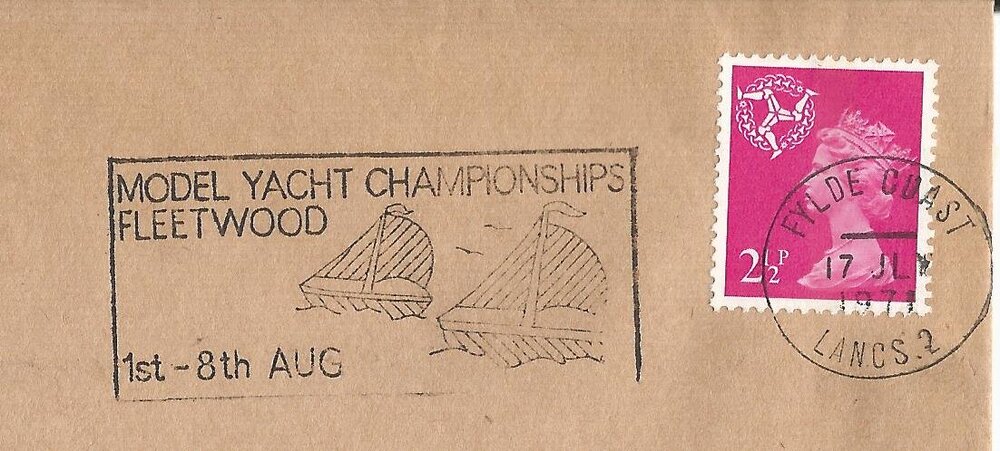 MODEL YACHT CHAMPIONSHIPS
FLEETWOOD
1st - 8th AUG
2½P
FYLDE COAST
17 JLY
1971
LANCS. 2